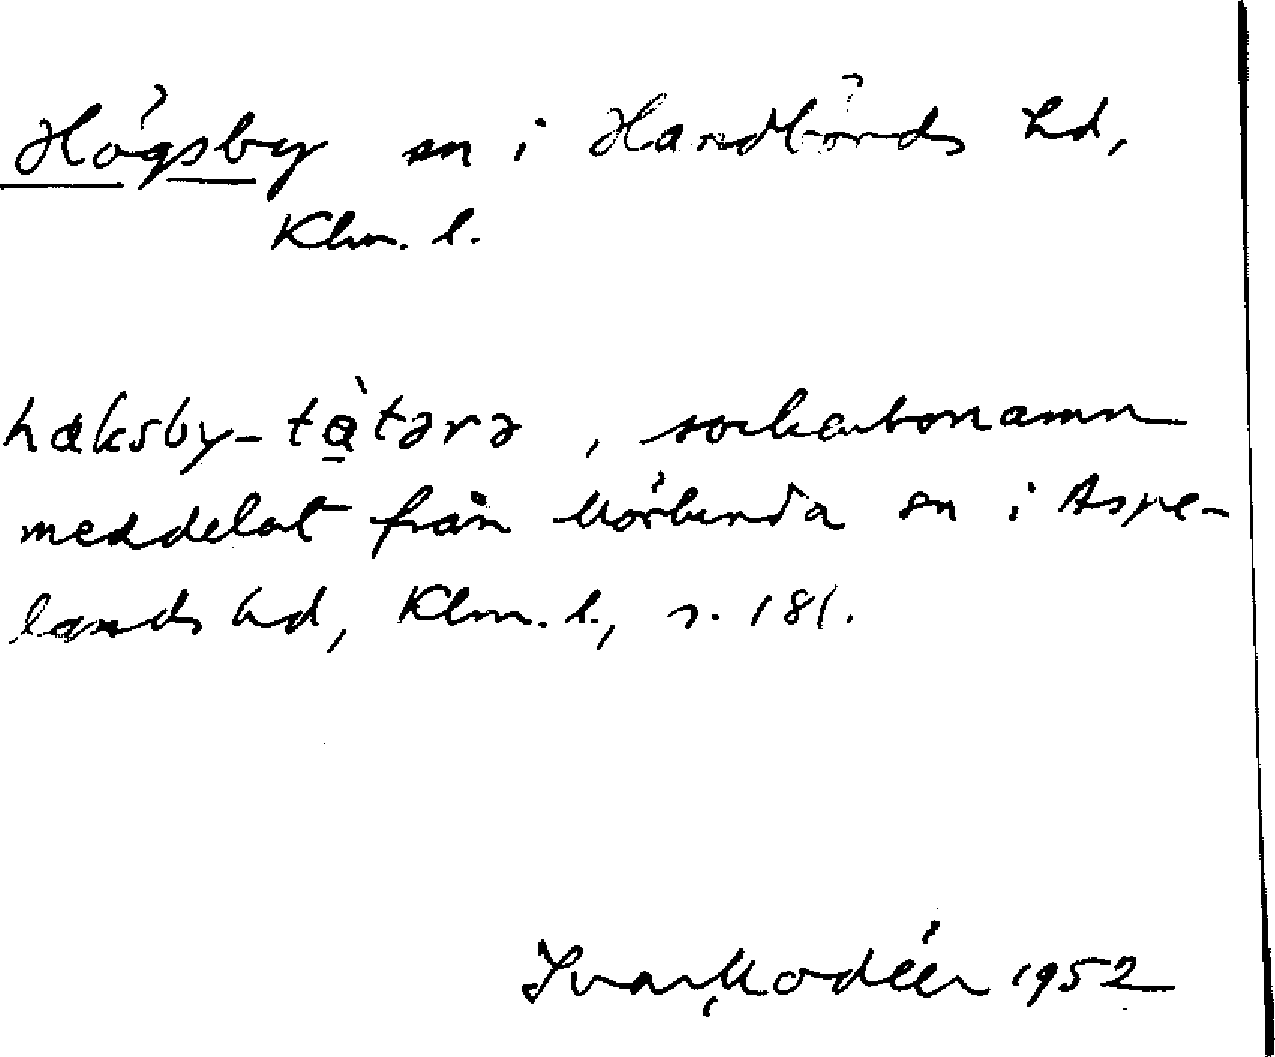 Högsby sn i Handbörds hd,
Klm. l.
hæksby-tàtərə, sockenbonamn
meddelat från Mörlunda sn i Aspe-
lands hd, Klm. l., s. 181.
Ivar Modéer 1952